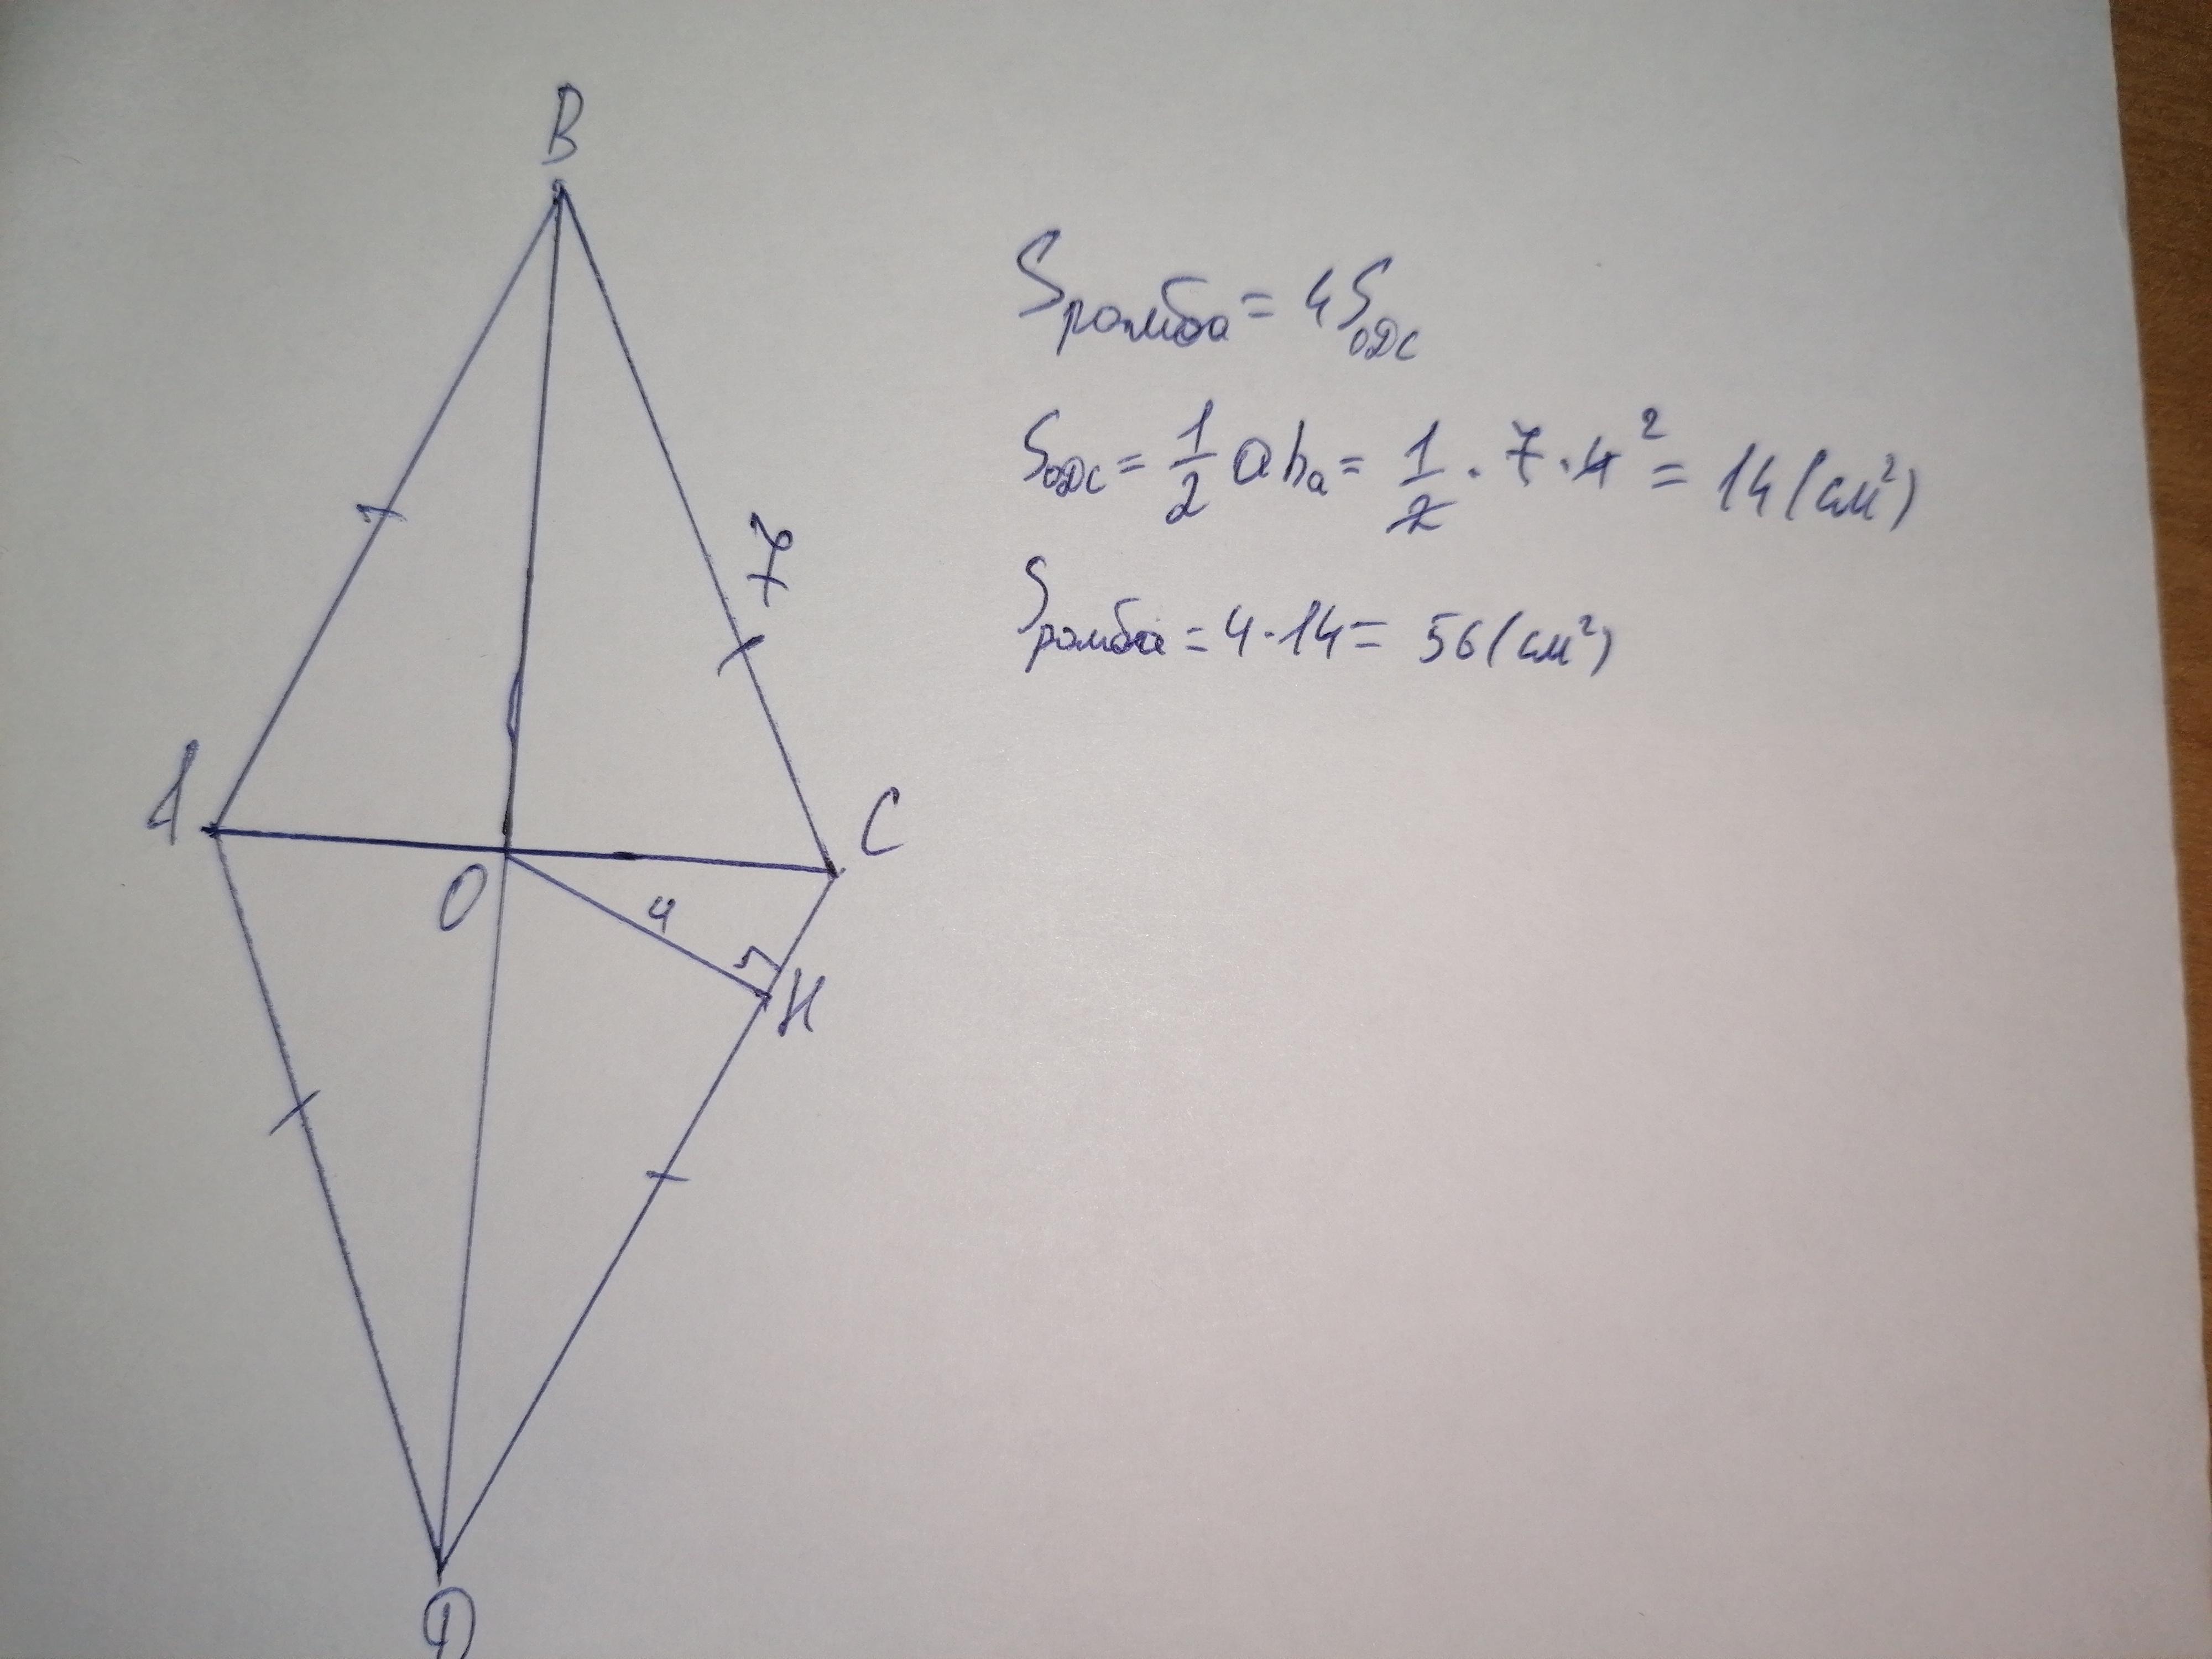 B
7
A
C
O
4
H
D
Sромба = 4SODC
SODC = 1/2 aha = 1/2 · 7 · 4 2 = 14 (см²)
Sромба = 4 · 14 = 56 (см²)